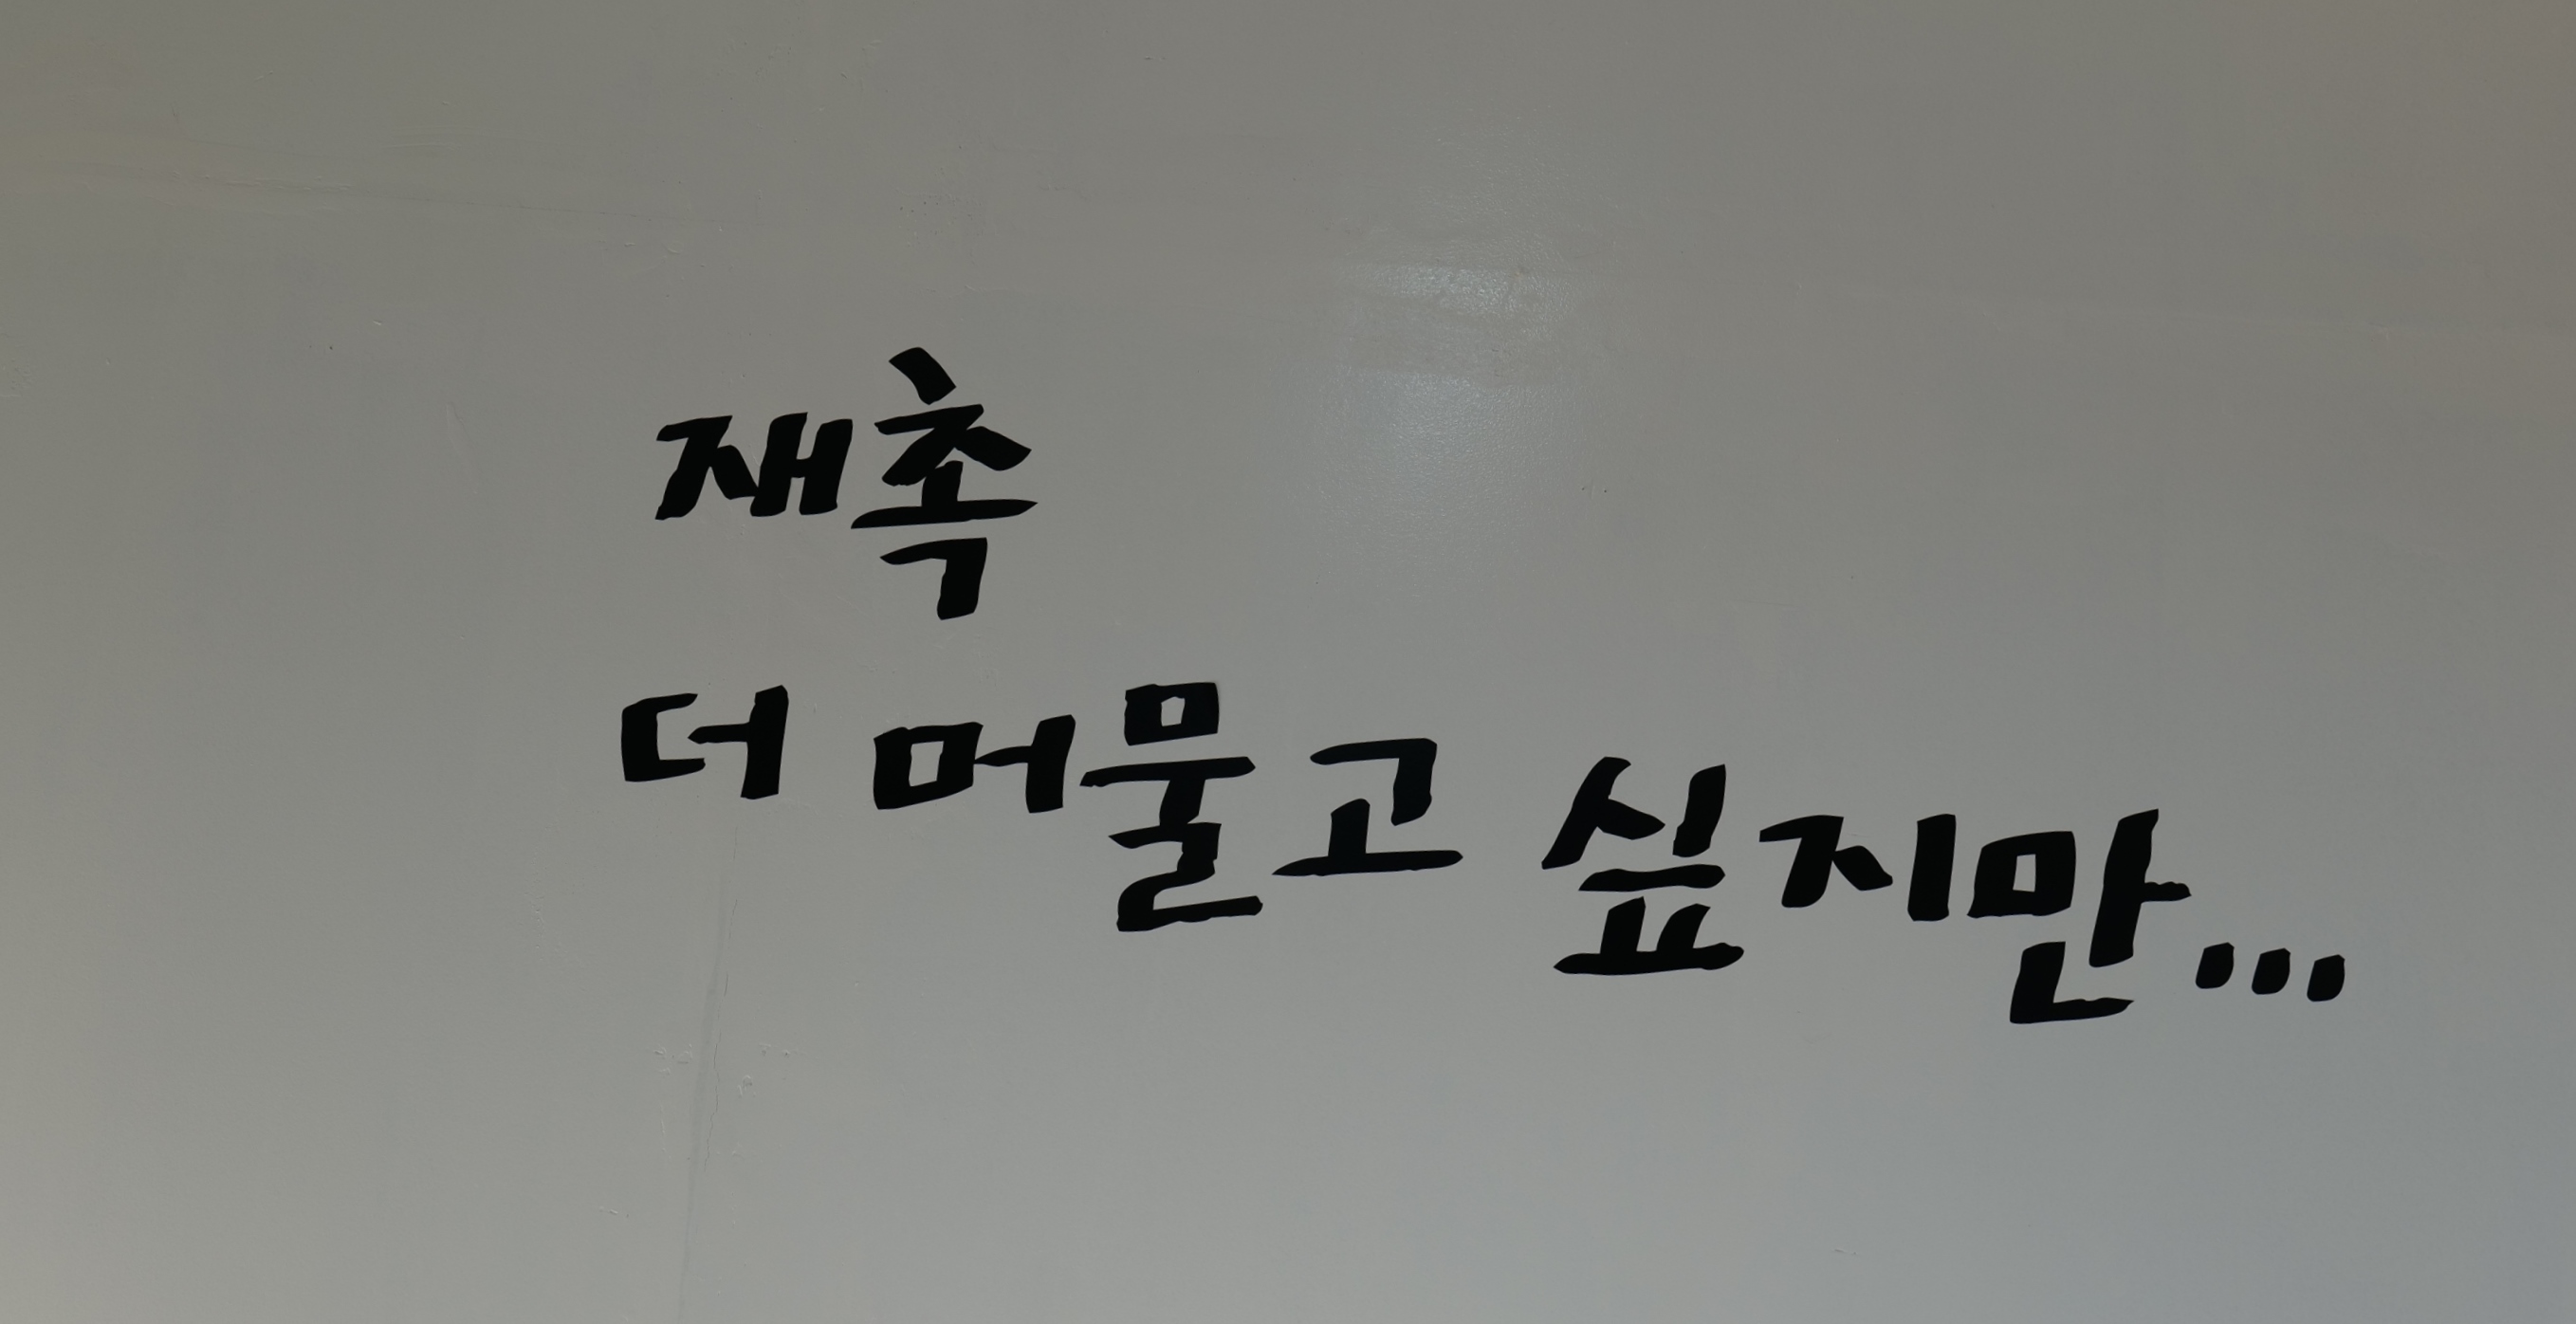 재촉
더 머물고 싶지만...